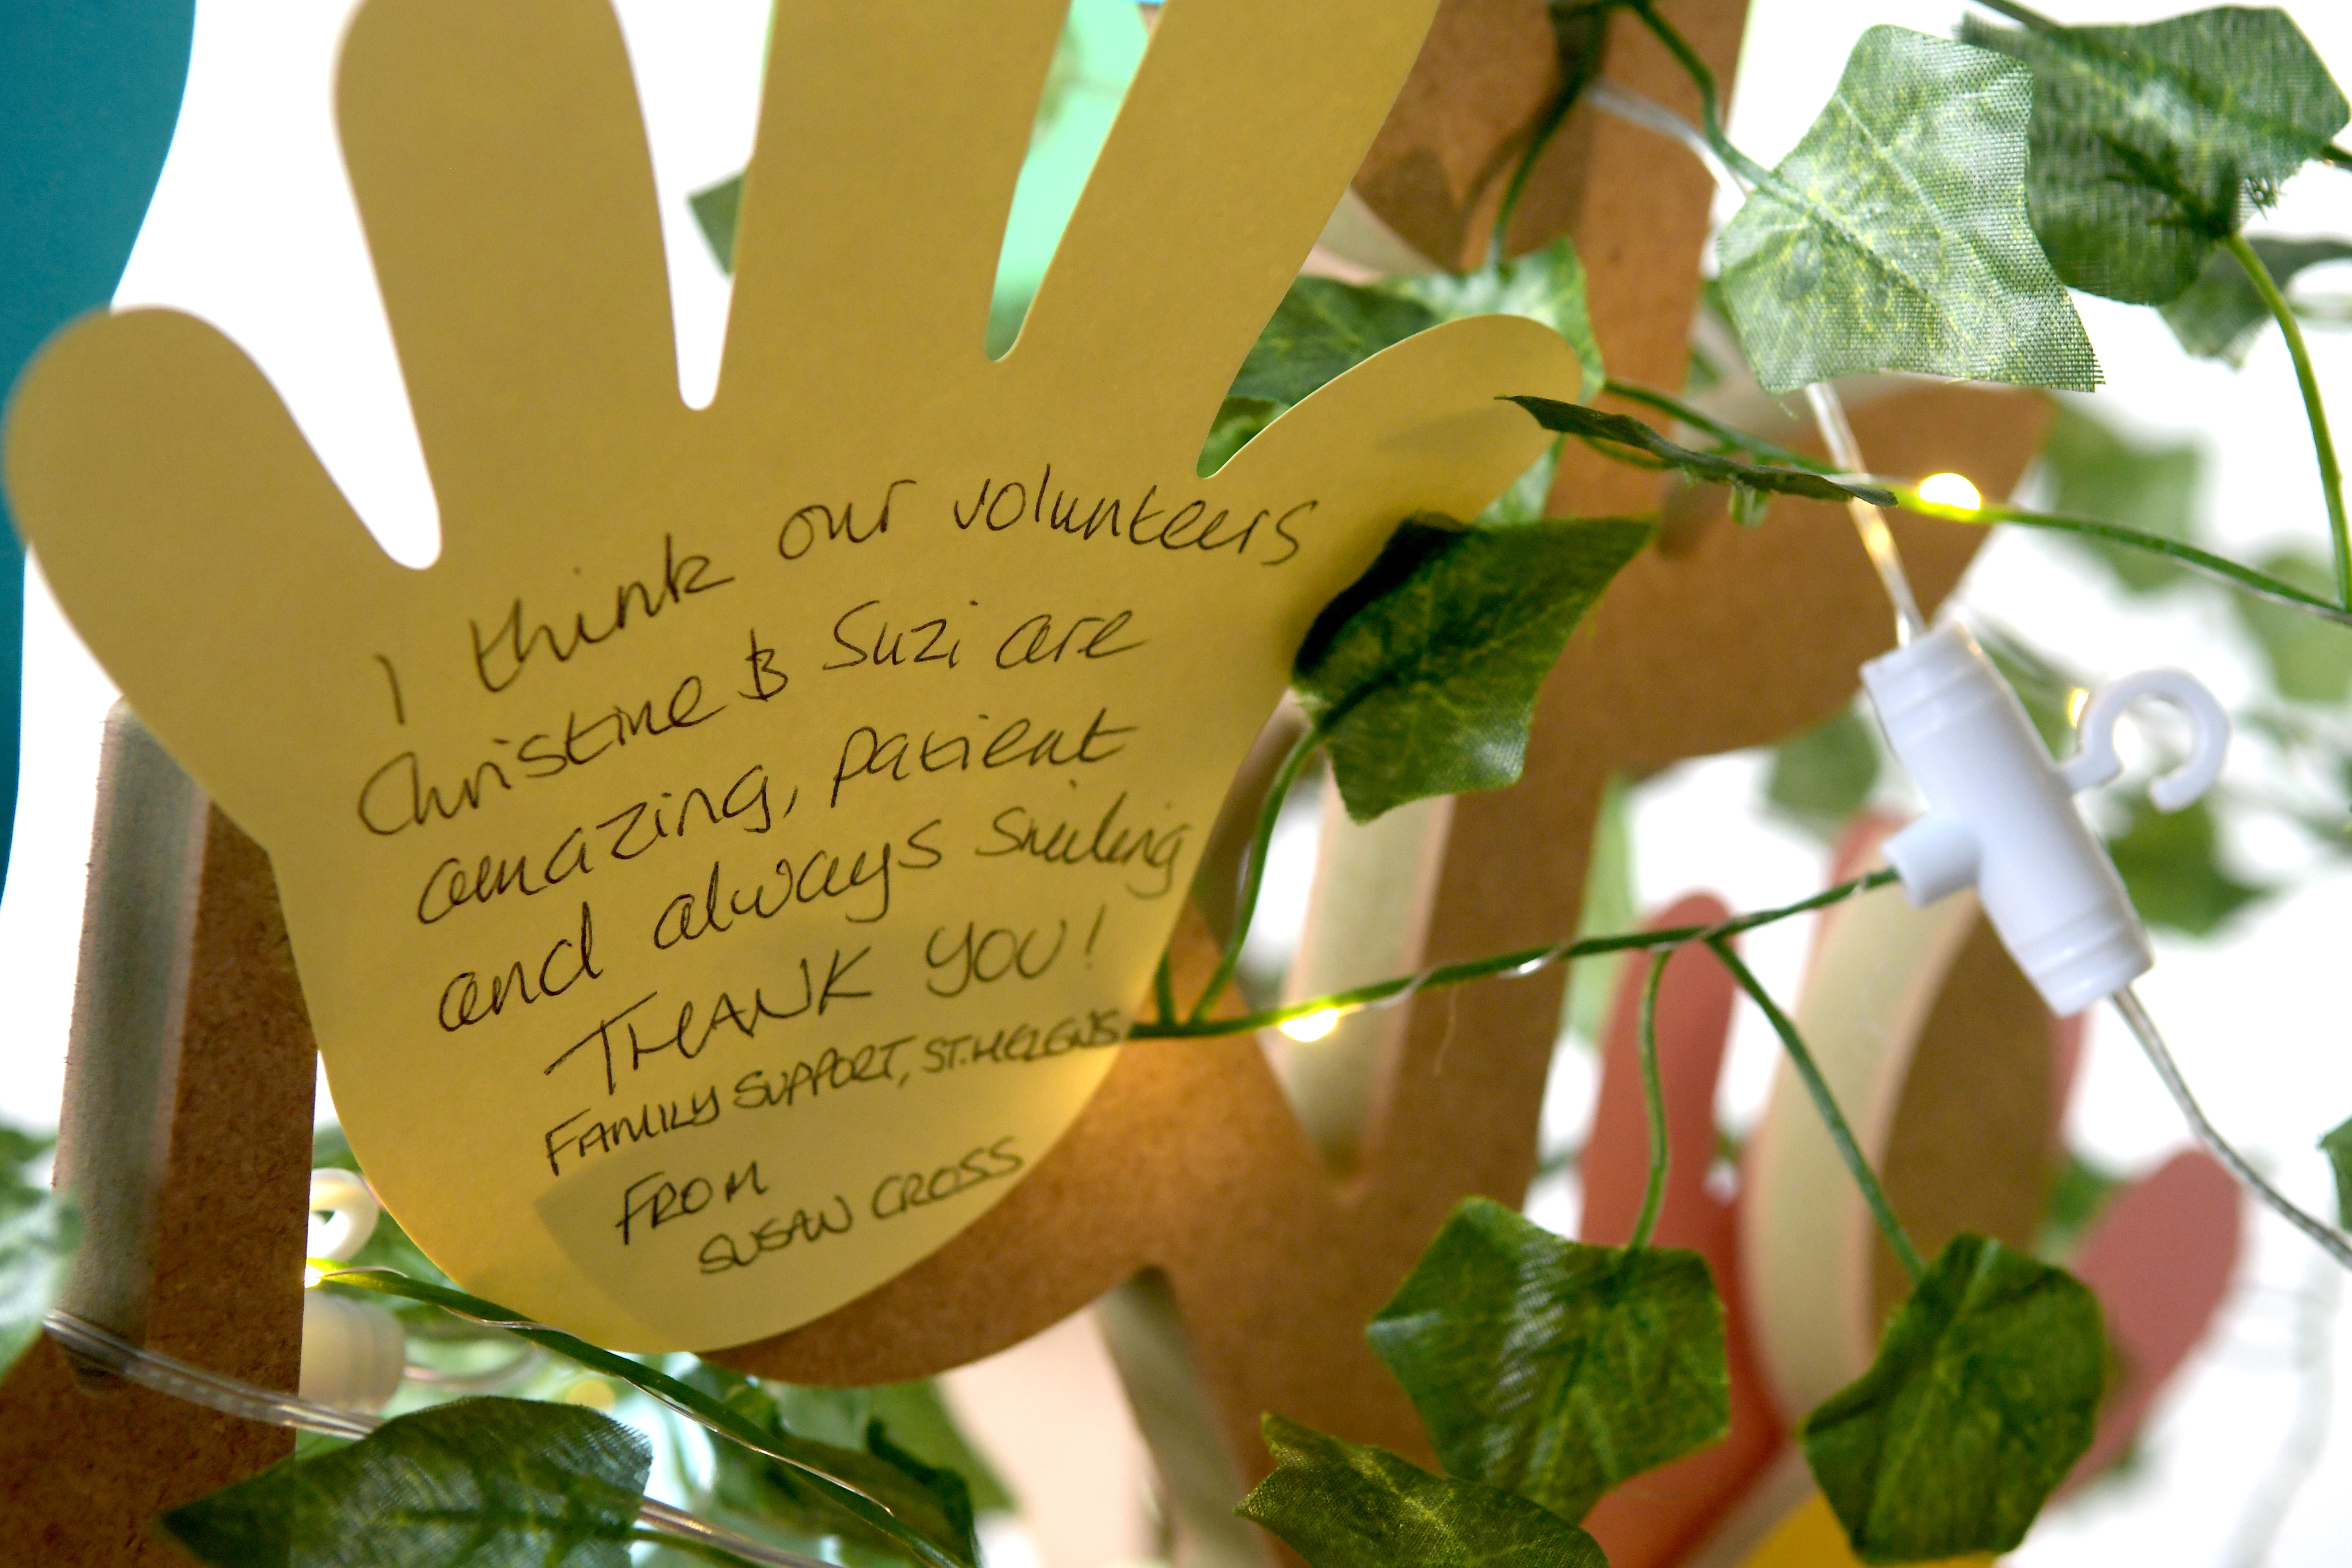 I think our volunteers
Christine & Suzi are
amazing, patient
and always smiling
THANK YOU!
FAMILY SUPPORT, ST.HELENS
FROM
SUSAN CROSS